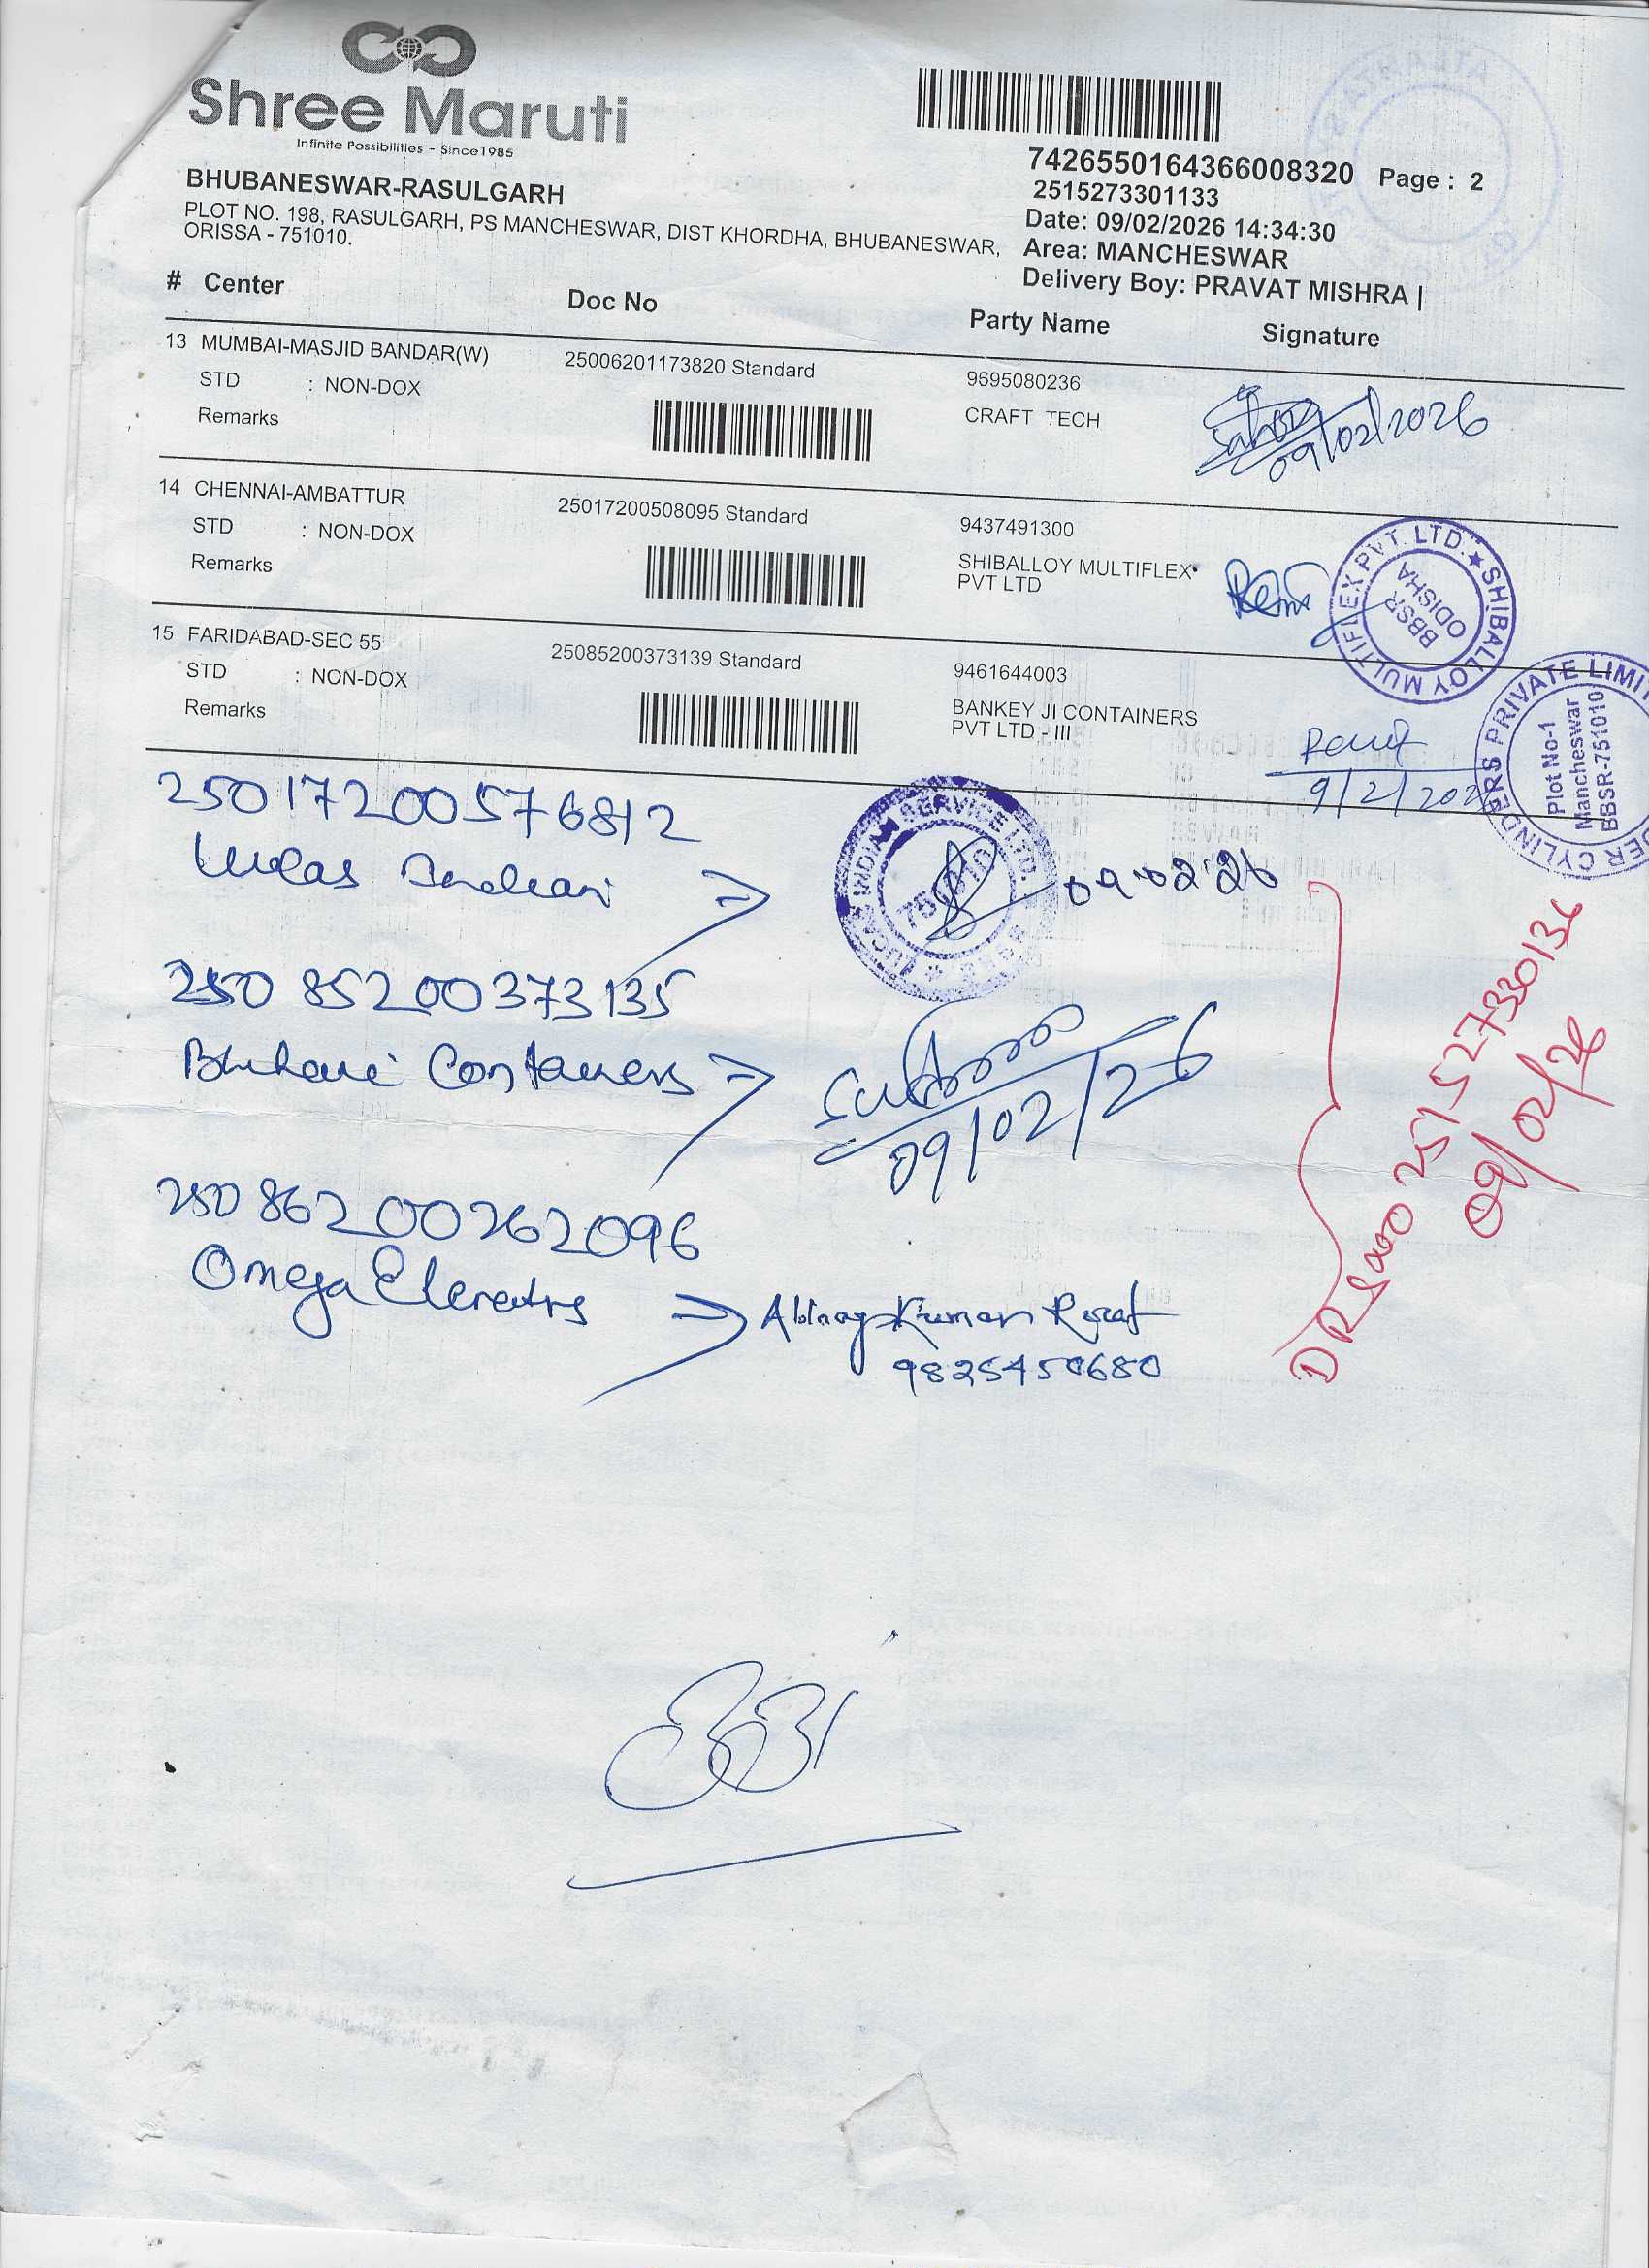 Shree Maruti
Infinite Possibilities - Since1985
BHUBANESWAR-RASULGARH
PLOT NO. 198, RASULGARH, PS MANCHESWAR, DIST KHORDHA, BHUBANESWAR,
ORISSA - 751010.
7426550164366008320 Page : 2
2515273301133
Date: 09/02/2026 14:34:30
Area: MANCHESWAR
Delivery Boy: PRAVAT MISHRA |
# Center Doc No Party Name Signature
13 MUMBAI-MASJID BANDAR(W) 25006201173820 Standard 9695080236
STD : NON-DOX CRAFT TECH
Remarks
09/02/2026
14 CHENNAI-AMBATTUR 25017200508095 Standard 9437491300
STD : NON-DOX SHIBALLOY MULTIFLEX
Remarks PVT LTD
SHIBALLOY MULTIFLEX PVT. LTD.
BBSR
ODISHA
15 FARIDABAD-SEC 55 25085200373139 Standard 9461644003
STD : NON-DOX BANKEY JI CONTAINERS
Remarks PVT LTD - III
9/2/202
CYLINDERS PRIVATE LIMI
Plot No-1
Mancheswar
BBSR-751010
25017200576812
Lucas
INDIAN SERVICE LTD.
751010
09.02.26
25085200373135
Containers
09/02/26
25086200262096
Omega Elevators
Kumar
9825450680
DRS no 2515273301
09/02/26